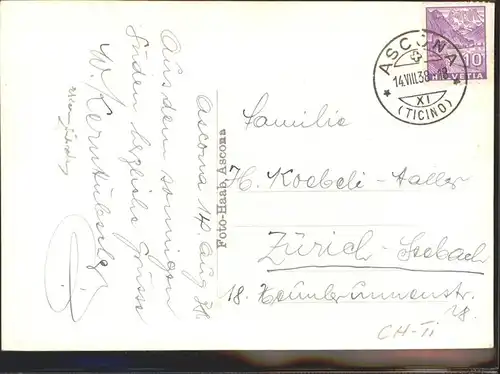 Ascona 14. Aug 38.
Aus dem sonnigen
Süden herzliche Grüsse
W. Kern
Foto-Haab, Ascona
ASCONA
14.VIII.38
XI
(TICINO)
10
HELVETIA
Familie
H. Koebeli-Haller
Zürich-Seebach
18.
18.
CH-Ti